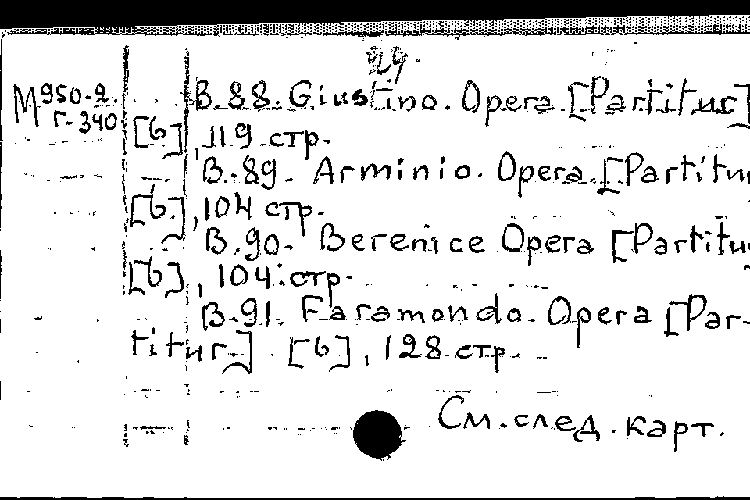 29.
М 950-2. B.88. Giustino. Opera. [Partitur]
Г-340 [6], 119 стр.
B.89. Arminio. Opera. [Partitu
[6], 104 стр.
B.90. Berenice Opera [Partitu
[6], 104 стр.
B.91. Faramondo. Opera [Par-
titur] [6], 128 стр.
См. след. карт.